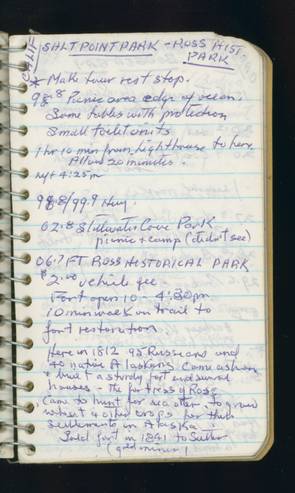 CALIF
SALT POINT PARK - ROSS HIST
PARK
* Make tour rest stop.
98.8 Picnic area edge of ocean.
Some tables with protection
Small toilet units
1 hr 10 min from lighthouse to here
Allow 20 minutes.
4:25 pm
98.8/99.9 Hwy.
02.8 Stillwater Cove Park
picnic + camp (didn't see)
06.7 FT ROSS HISTORICAL PARK
$2.00 vehicle fee.
Fort open 10 - 4:30 pm
10 min walk on trail to
fort restoration
Here in 1812 95 Russians and
40 native Alaskans came ashore
& built a sturdy fort and several
houses - the fortress of Ross
Came to hunt for sea otter, to grow
wheat & other crops for their
settlements in Alaska.
Sold fort in 1841 to Sutter
(gold miner)